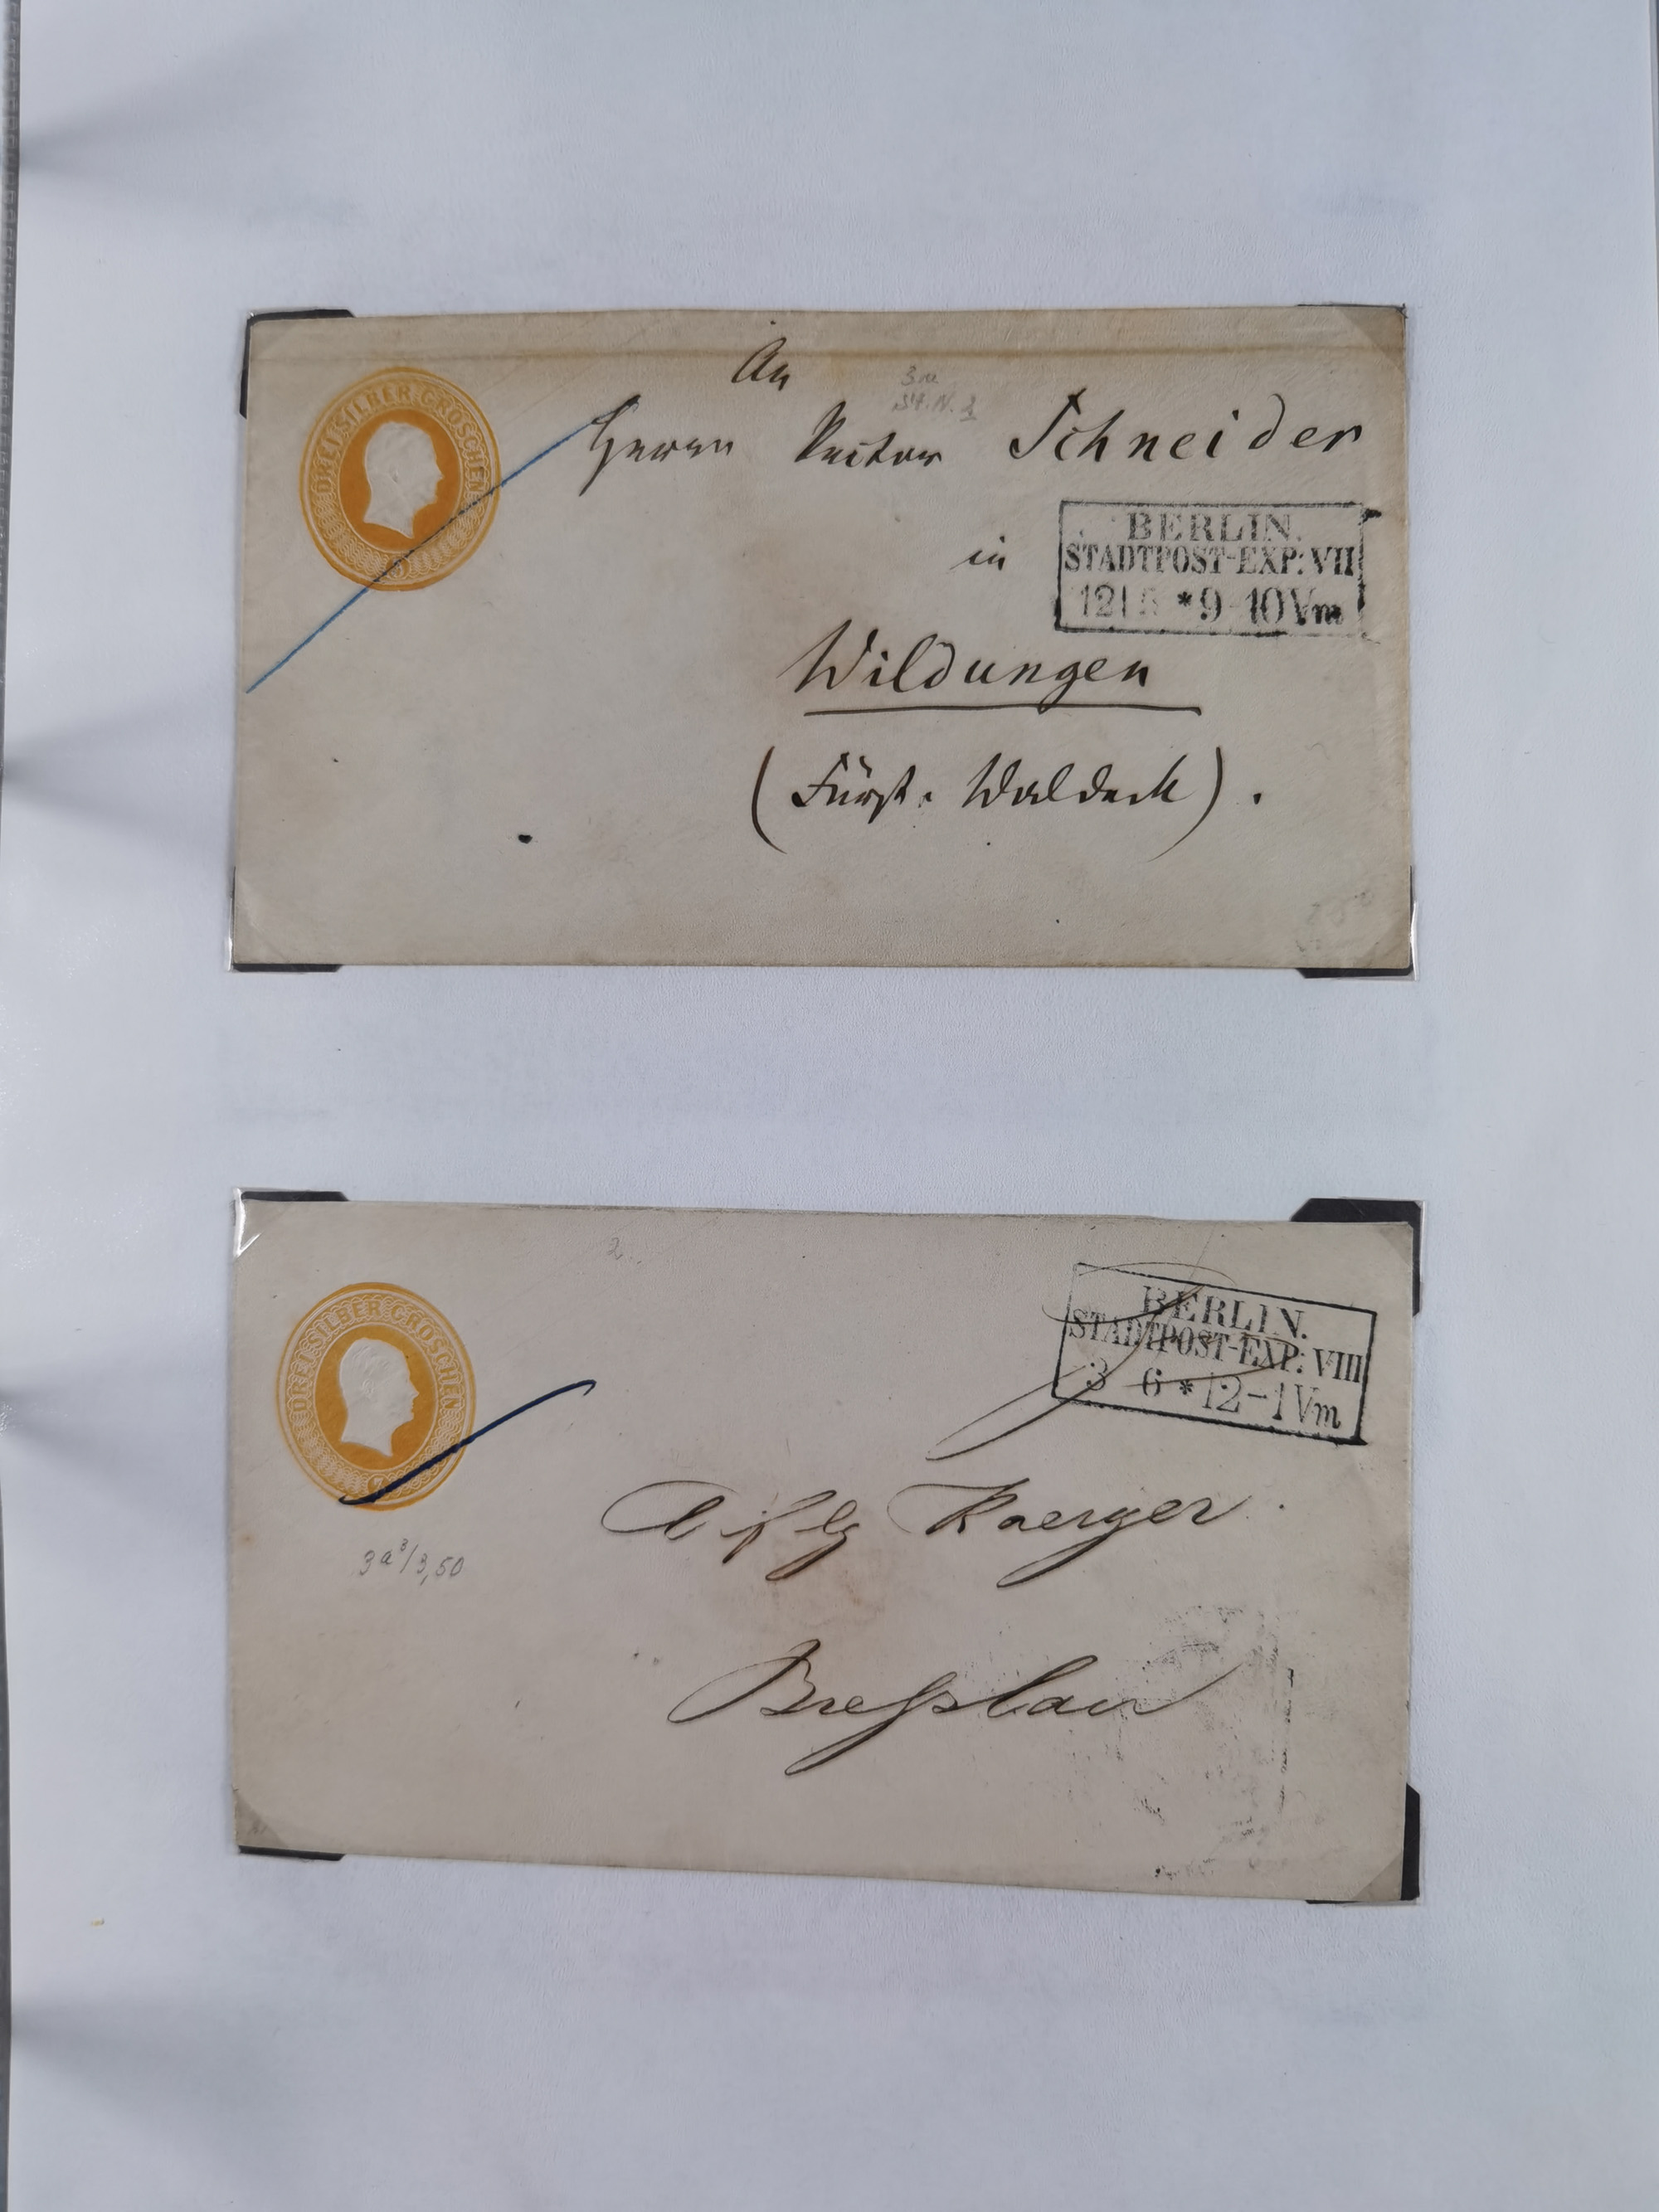 DREI SILBER GROSCHEN
3
An
3a
Herrn Rector Schneider
in
BERLIN.
STADTPOST-EXP: VII
12 5 * 9-10 Vm
Wildungen
(Fürst. Waldeck).
2.
DREI SILBER GROSCHEN
BERLIN.
STADTPOST-EXP: VIII
3 6 * 12-1 Vm
3a³/3,50
Kaerger.
Breßlau